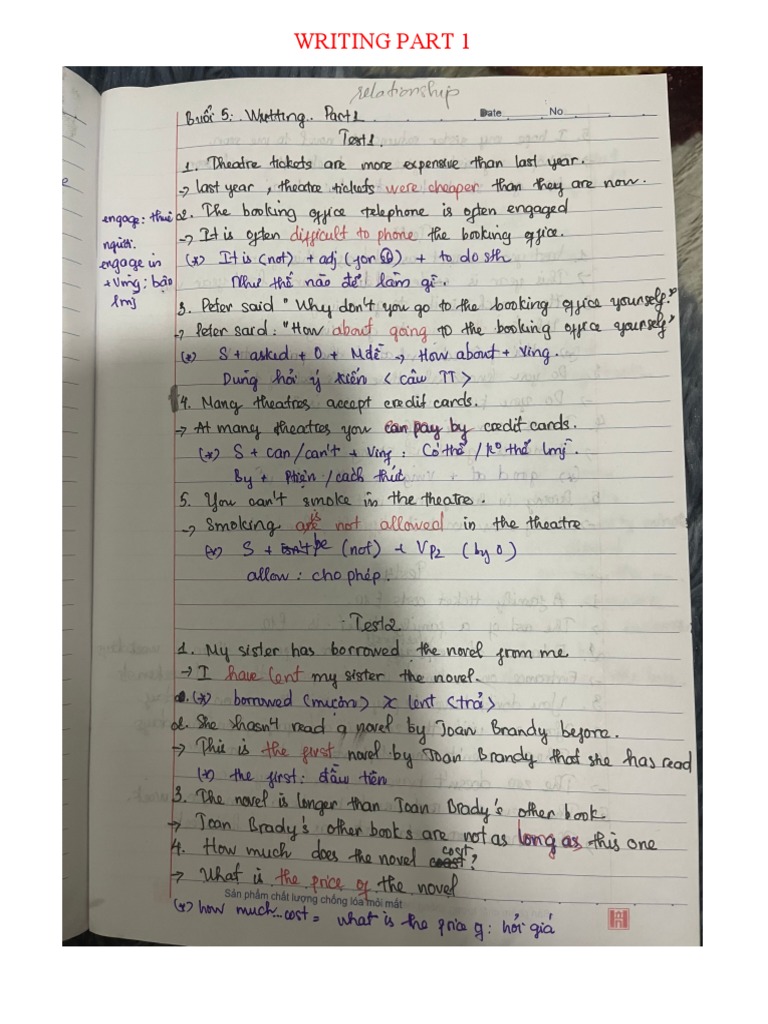 WRITING PART 1
relationship
Buổi 5: Writting. Part1
Date No
Test1
1. Theatre tickets are more expensive than last year.
→ last year, theatre tickets were cheaper than they are now.
engage: thuê
người.
engage in
+ Ving: bận
lmj
2. The booking office telephone is often engaged
→ It is often difficult to phone the booking office.
(*) It is (not) + adj (for ) + to do sth
Như thế nào để làm gì.
3. Peter said "Why don't you go to the booking office yourself?"
→ Peter said: "How about going to the booking office yourself"
(*) S + asked + O + Mđề → How about + Ving.
Dùng hỏi ý kiến <câu TT>
4. Many theatres accept credit cards.
→ At many theatres you can pay by credit cards.
(*) S + can/can't + Ving: Có thể / ko thể lmj
By + Phtiện / cách thức
5. You can't smoke in the theatre.
→ Smoking is not allowed in the theatre
(*) S + be (not) + Vp2 (by O)
allow: cho phép.
Test2
1. My sister has borrowed the novel from me
→ I have lent my sister the novel.
(*) borrowed <mượn> x lent <trả>
2. She hasn't read a novel by Joan Brandy before.
→ This is the first novel by Joan Brandy that she has read
(*) the first: đầu tiên
3. The novel is longer than Joan Brady's other book
→ Joan Brady's other books are not as long as this one
4. How much does the novel cost?
→ What is the price of the novel
Sản phẩm chất lượng chống lóa mỏi mắt
(*) how much...cost = what is the price of: hỏi giá